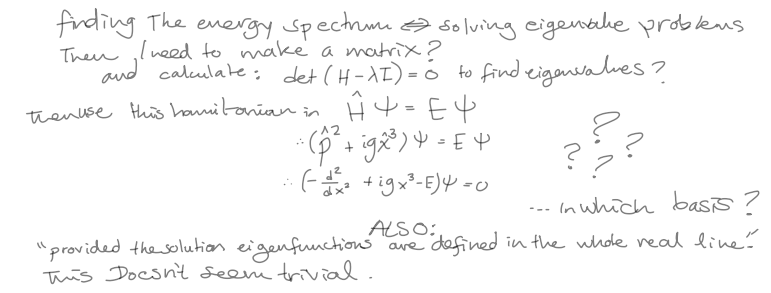 finding The energy spectrum ⇔ solving eigenvalue problems
Then, I need to make a matrix?
and calculate: det(H-λI)=0 to find eigenvalues?
then use this hamiltonian in Ĥψ = Eψ
∴(p̂² + igx̂³)ψ = Eψ
∴(-d²/dx² + igx³-E)ψ=0
? ? ? ?
... in which basis?
ALSO:
"provided the solution eigenfunctions are defined in the whole real line."
This Doesn't seem trivial.